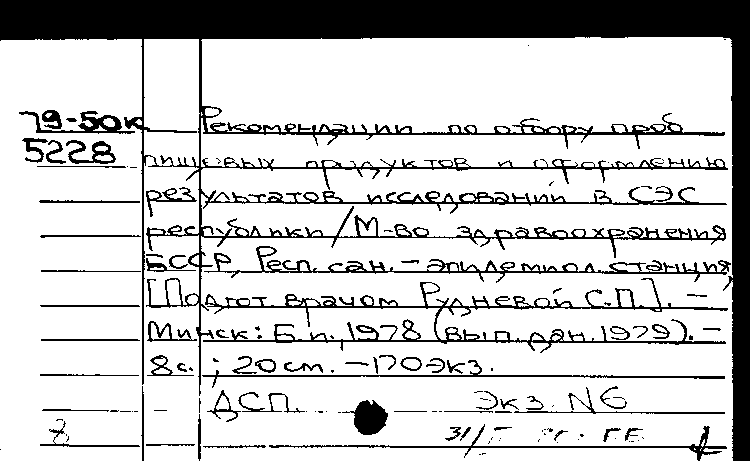 79-50к Рекомендации по отбору проб
5228 пищевых продуктов и оформлению
результатов исследований в СЭС
республики/М-во здравоохранения
БССР, Респ. сан.-эпидемиол. станция;
[Подгот. врачом Рудневой С.П.]. –
Минск: Б.и., 1978 (вып. дан. 1979). –
8с.; 20см. – 170экз.
ДСП. Экз. N6
8